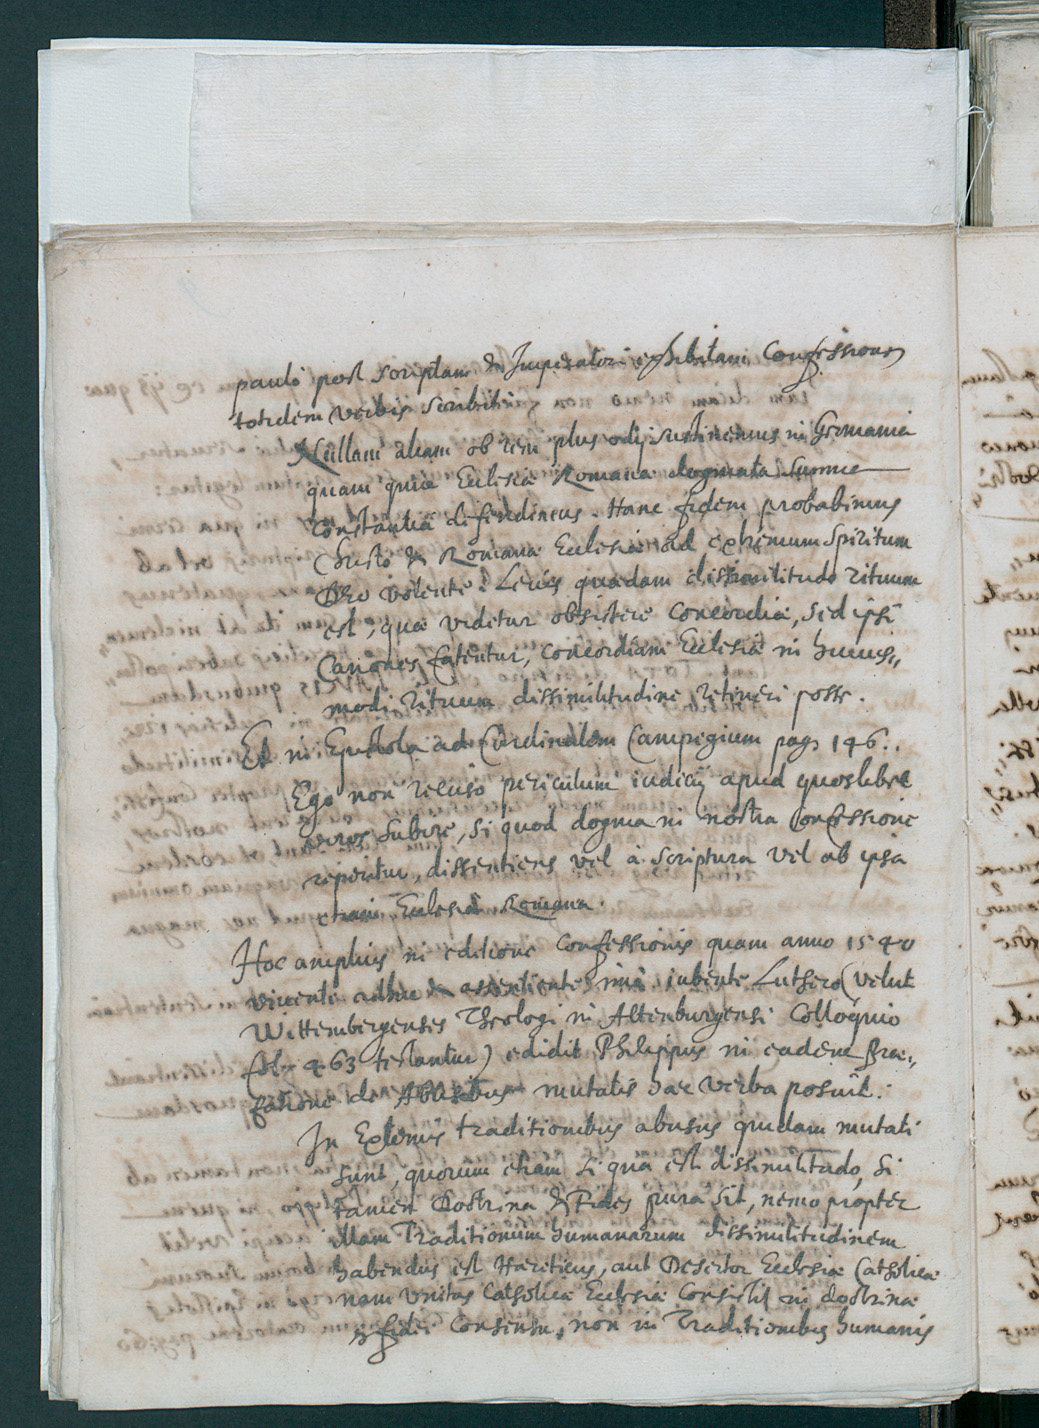 paulo post scriptam & Imperatori exhibitam Confessionem
totidem verbis scribit:
Nullam aliam ob rem plus odij sustinemus in Germania
quam quia Ecclesiæ Romanæ dogmata summa
constantia defendimus. Hanc fidem probabimus
Christo & Romanæ Ecclesiæ ad extremum Spiritum
Deo volente. Levis quædam dissimilitudo rituum
est, quæ videtur obsistere concordiæ, sed ipsi
Canones fatentur, concordiam Ecclesiæ in huius„
modi rituum dissimilitudine retineri posse.
Et in Epistola ad Cardinalem Campegium pag 146..
Ego non recuso periculum iudicij apud quoslibet
viros subire, si quod dogma in nostra Confessione
reperitur, dissentiens vel à Scriptura vel ab ipsa
etiam Ecclesia Romana.
Hoc amplius in editione Confessionis quam anno 1540
vivente adhuc & assentiente imò iubente Luthero (velut
Wittembergenses Theologi in Altenburgensi Colloquio
fol. 463 testantur) edidit Philippus in eadem Præ„
fatione de Abusibus mutatis hæc verba posuit:
In Externis traditionibus abusus quidam mutati
sunt, quorum etiam si qua est dissimilitudo, si
tamen Doctrina & Fides pura sit, nemo propter
illam Traditionum humanarum dissimilitudinem
habendus est Hæreticus, aut Desertor Ecclesiæ Catholicæ
nam Unitas Catholicæ Ecclesiæ Consistit in doctrinæ
& fidei Consensu, non in Traditionibus humanis